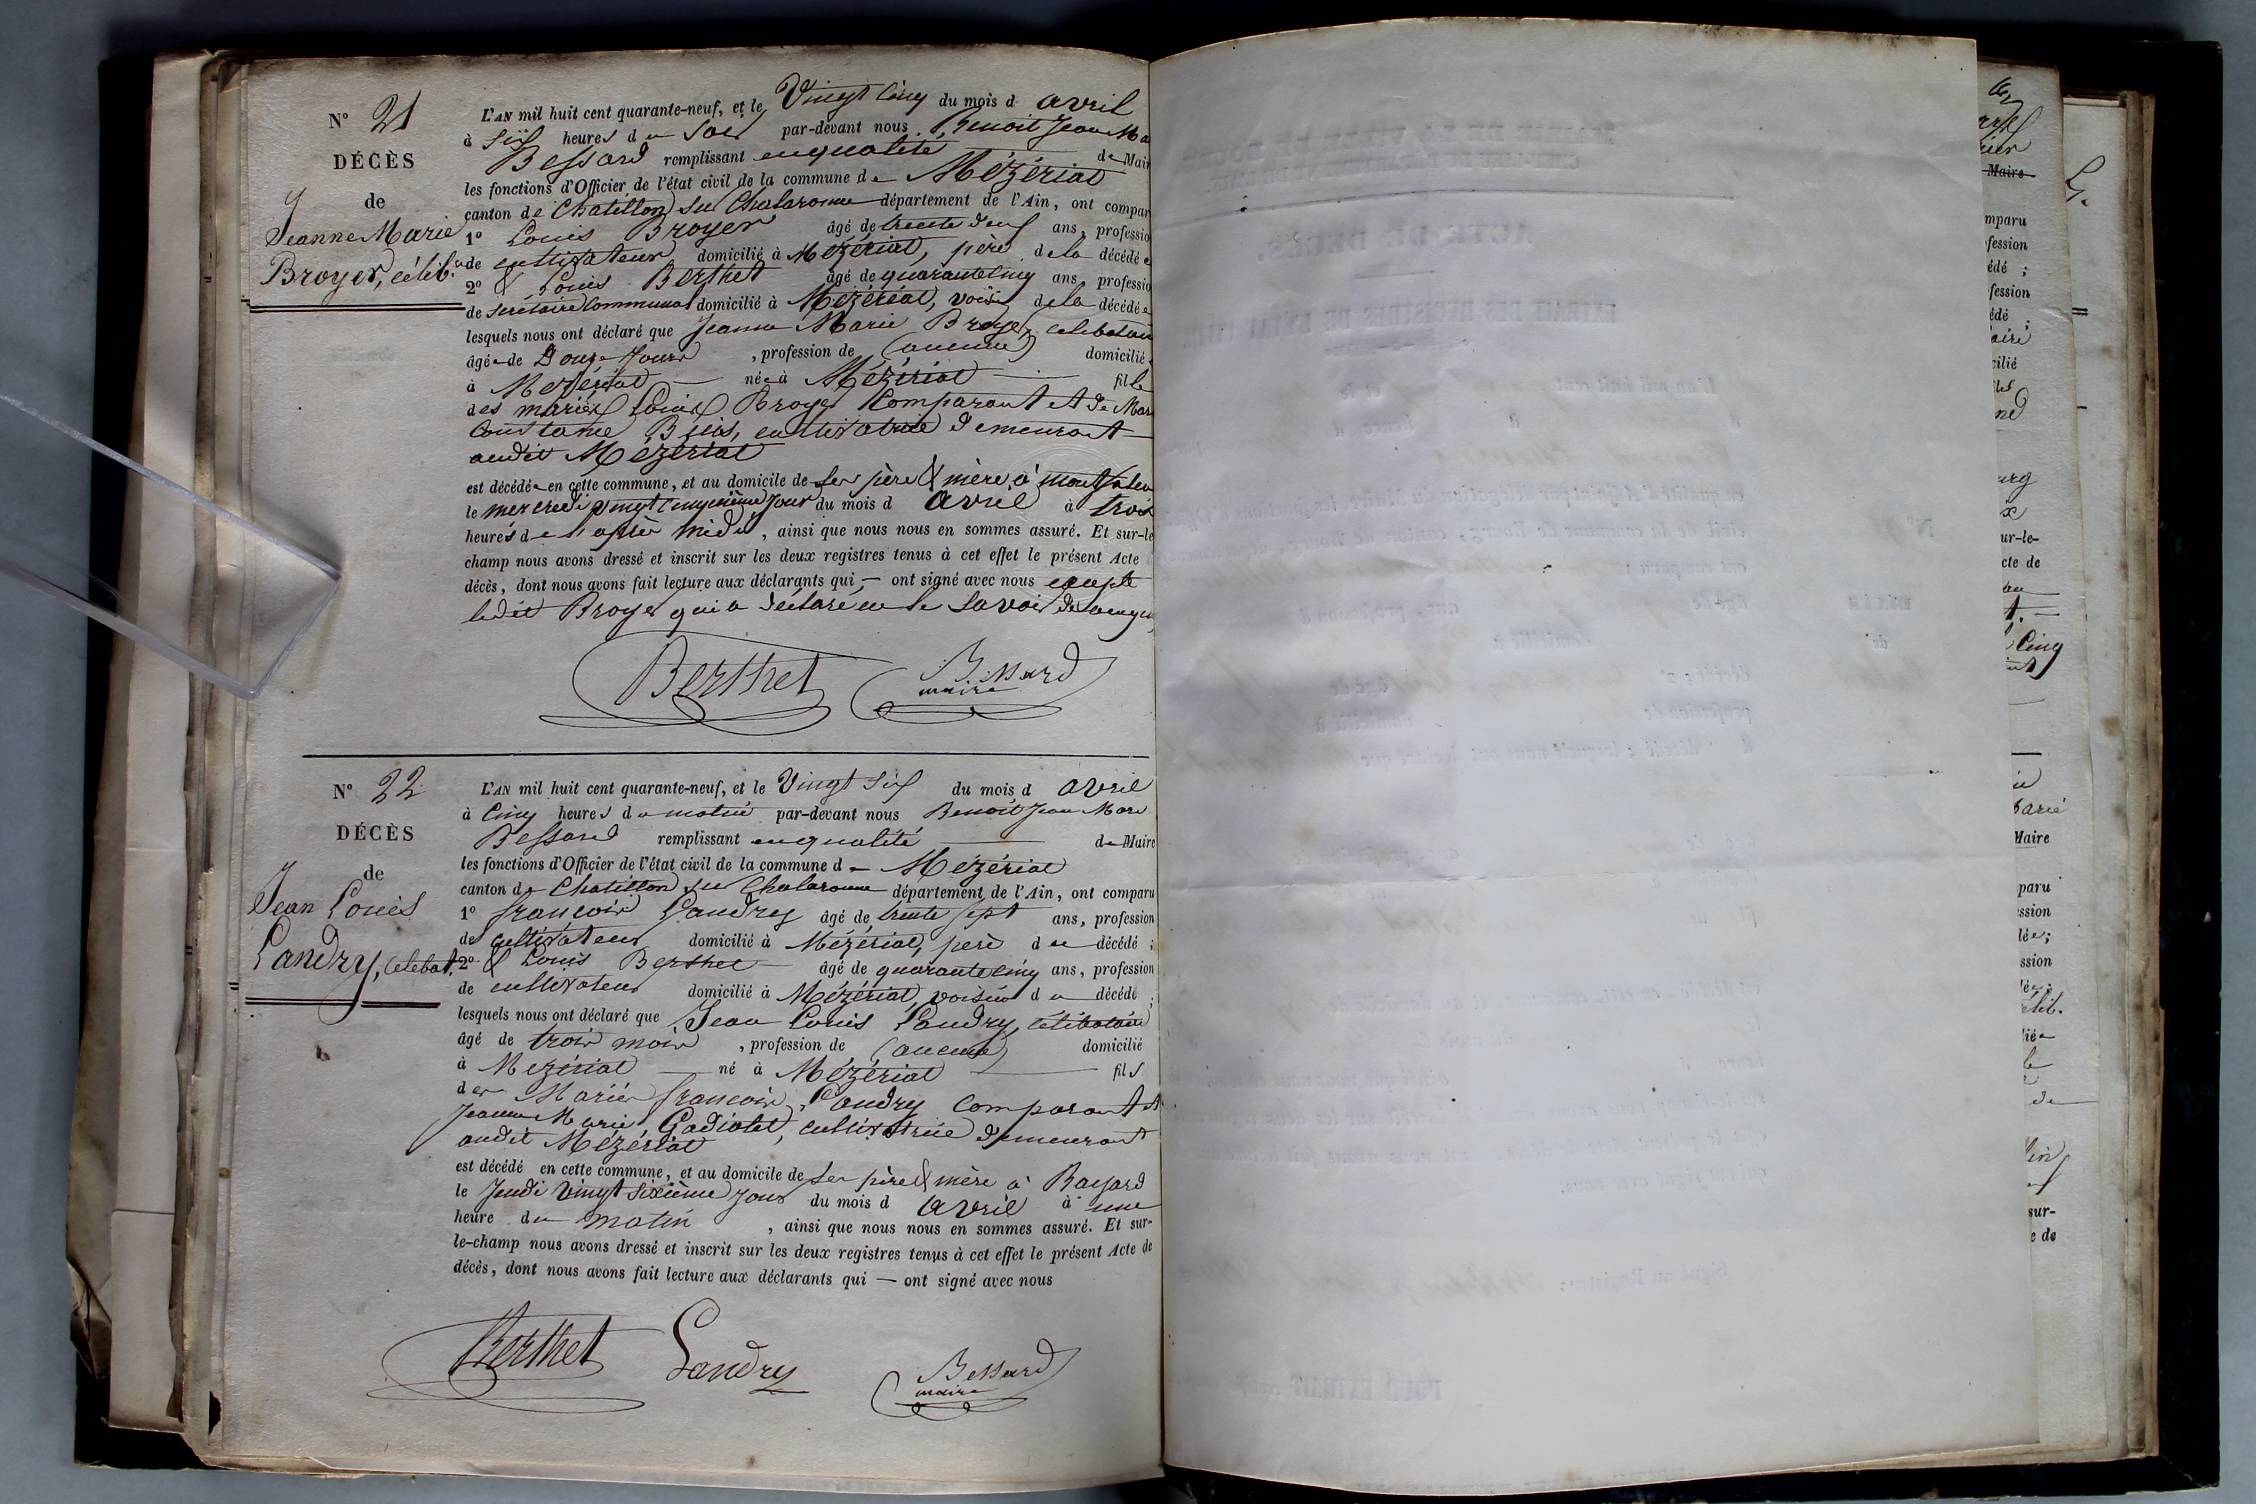 N° 21
DÉCÈS
de
Jeanne Marie
Broyer, célib.
L'AN mil huit cent quarante-neuf, et le Vingt cinq du mois d avril
à six heures du soir par-devant nous Benoit Jean Ma
Bessard remplissant en qualité de Mair
les fonctions d'Officier de l'état civil de la commune de Mézériat
canton de Chatillon sur Chalaronne département de l'Ain, ont compar
1° Louis Broyer âgé de trente neuf ans, professio
de cultivateur domicilié à Mézériat, père de la décédée
2° & Louis Berthet âgé de quarante cinq ans, professio
de secrétaire communal domicilié à Mézériat, voisin de la décédée
lesquels nous ont déclaré que Jeanne Marie Broyer, celibataire
âgée de Douze Jours , profession de (aucune) domicilié
à Mézériat née à Mézériat fille
des mariés Louis Broyer Comparant et de Mar
Constance cultivatrice demeurant
audit Mézériat
est décédée en cette commune, et au domicile de ses père & mère, à
le mercredi vingt cinquième jour du mois d avril à trois
heures de l'après midi , ainsi que nous nous en sommes assuré. Et sur-le
champ nous avons dressé et inscrit sur les deux registres tenus à cet effet le présent Acte
décès, dont nous avons fait lecture aux déclarants qui — ont signé avec nous excepté
ledit Broyer qui a déclaré ne le savoir de ce enquis
Berthet Bessard
maire
N° 22
DÉCÈS
de
Jean Louis
Landry, célebat.
L'AN mil huit cent quarante-neuf, et le Vingt six du mois d avril
à cinq heures du matin par-devant nous Benoit Jean Mari
Bessard remplissant en qualité de Maire
les fonctions d'Officier de l'état civil de la commune de Mézériat
canton de Chatillon sur Chalaronne département de l'Ain, ont comparu
1° françois Landry âgé de trente sept ans, profession
de cultivateur domicilié à Mézériat, père du décédé ;
2° & Louis Berthet âgé de quarante cinq ans, profession
de cultivateur domicilié à Mézériat, voisin du décédé ;
lesquels nous ont déclaré que Jean Louis Landry, célibataire
âgé de trois mois , profession de (aucune) domicilié
à Mézériat né à Mézériat fils
des Mariés françois Landry comparant et
Jeanne Marie Gadiolet, cultivatrice demeurant
audit Mézériat
est décédé en cette commune, et au domicile de ses père & mère à Rayard
le Jeudi Vingt sixième jour du mois d avril à une
heure du matin , ainsi que nous nous en sommes assuré. Et sur-
le-champ nous avons dressé et inscrit sur les deux registres tenus à cet effet le présent Acte de
décès, dont nous avons fait lecture aux déclarants qui — ont signé avec nous
Berthet Landry Bessard
maire